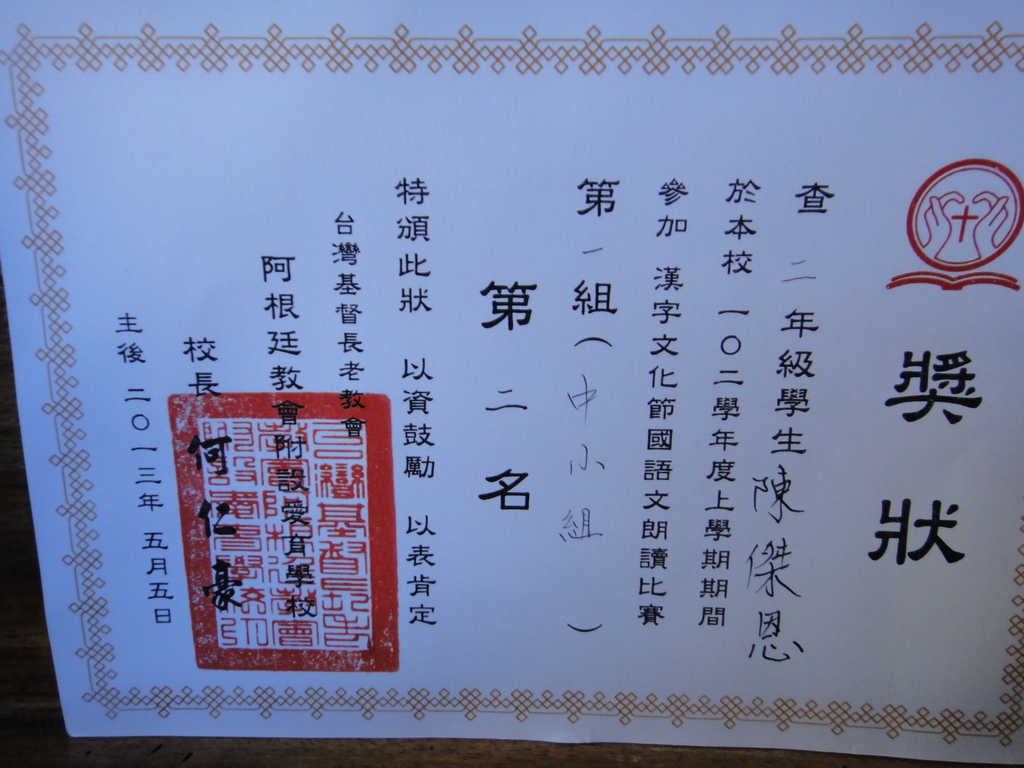 獎狀
查 二 年級學生 陳傑恩
於本校 一〇二學年度上學期期間
參加 漢字文化節國語文朗讀比賽
第一組(中小組)
第二名
特頒此狀 以資鼓勵 以表肯定
台灣基督長老教會
阿根廷教會附設愛育學校
校長 何仁豪
主後 二〇一三年 五月五日